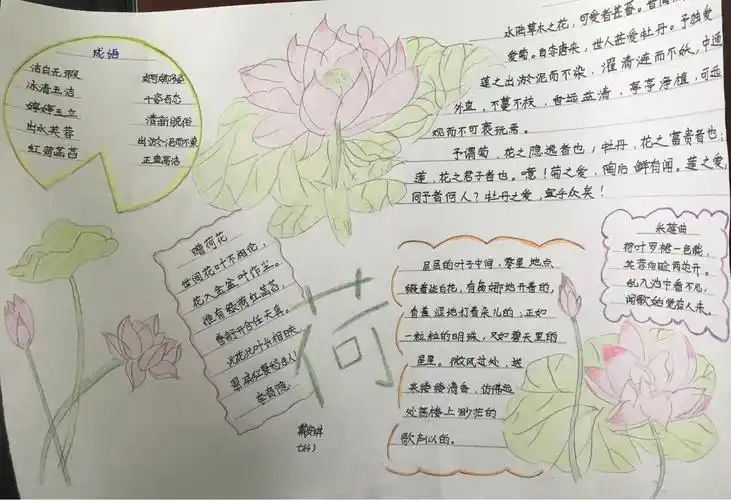 成语
洁白无瑕
冰清玉洁
婷婷玉立
出水芙蓉
红菡萏苔
婀娜多姿
千姿百态
清新脱俗
出淤泥而不染
正直高洁
水陆草木之花，可爱者甚蕃。
爱菊。自李唐来，世人甚爱牡丹。予独爱
莲之出淤泥而不染，濯清涟而不妖，中通
外直，不蔓不枝，香远益清，亭亭净植，可远
观而不可亵玩焉。
予谓菊，花之隐逸者也；牡丹，花之富贵者也；
莲，花之君子者也。噫！菊之爱，陶后鲜有闻。莲之爱，
同予者何人？牡丹之爱，宜乎众矣！
赠荷花
世间花叶不相伦，
花入金盆叶作尘。
惟有绿荷红菡萏，
卷舒开合任天真。
此花此叶长相映，
翠减红衰愁杀人
李商隐
荷
层层的叶子中间，零星地点
缀着些白花，有袅娜地开着的，
有羞涩地打着朵儿的；正如
一粒粒的明珠，又如碧天里的
星星。微风过处，送
来缕缕清香，仿佛远
处高楼上渺茫的
歌声似的。
采莲曲
荷叶罗裙一色裁，
芙蓉向脸两边开。
乱入池中看不见，
闻歌始觉有人来。